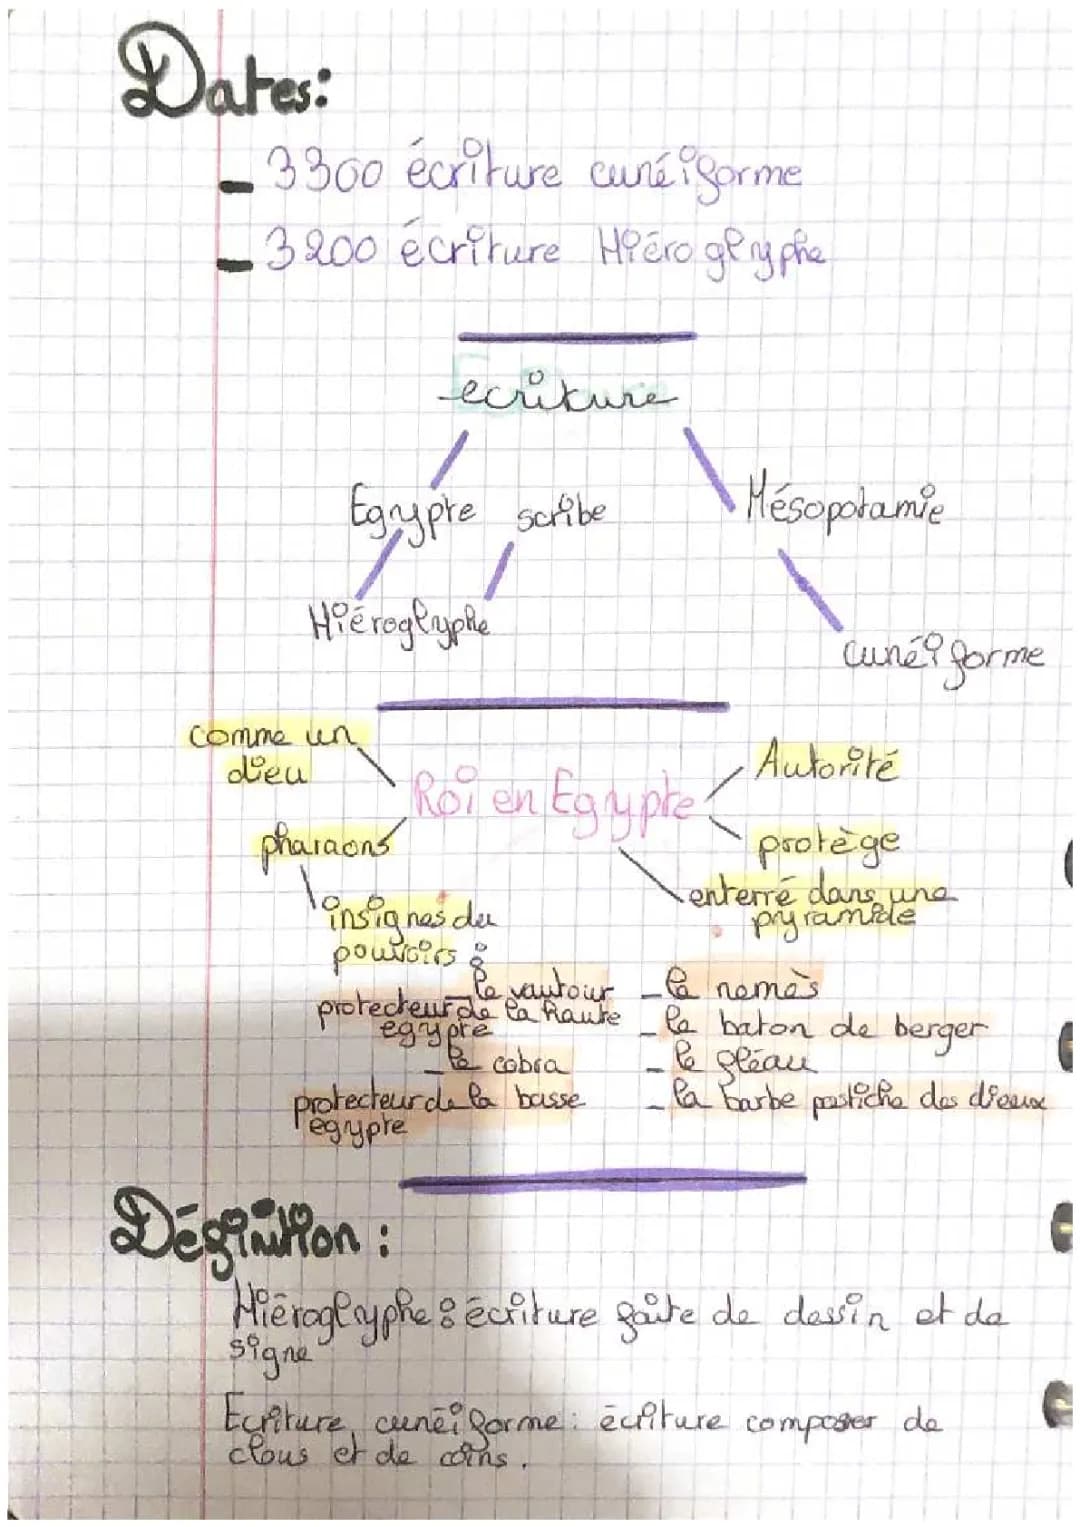 Dates:
- 3300 écriture cunéiforme
- 3200 écriture Hiéroglyphe
ecriture
Egypte scribe Mésopotamie
Hiéroglyphe
cunéiforme
comme un
dieu
Autorité
Roi en Egypte
pharaons
protège
enterré dans une
pyramide
insignes du
pouvoirs :
- le vautour
protecteur de la haute
egypte
- le cobra
protecteur de la basse
egypte
- le nemès
- le baton de berger
- le fléau
- la barbe postiche des dieux
Définition :
Hiéroglyphe : écriture faite de dessin et de
signe
Ecriture cunéiforme : écriture composer de
clous et de coins.